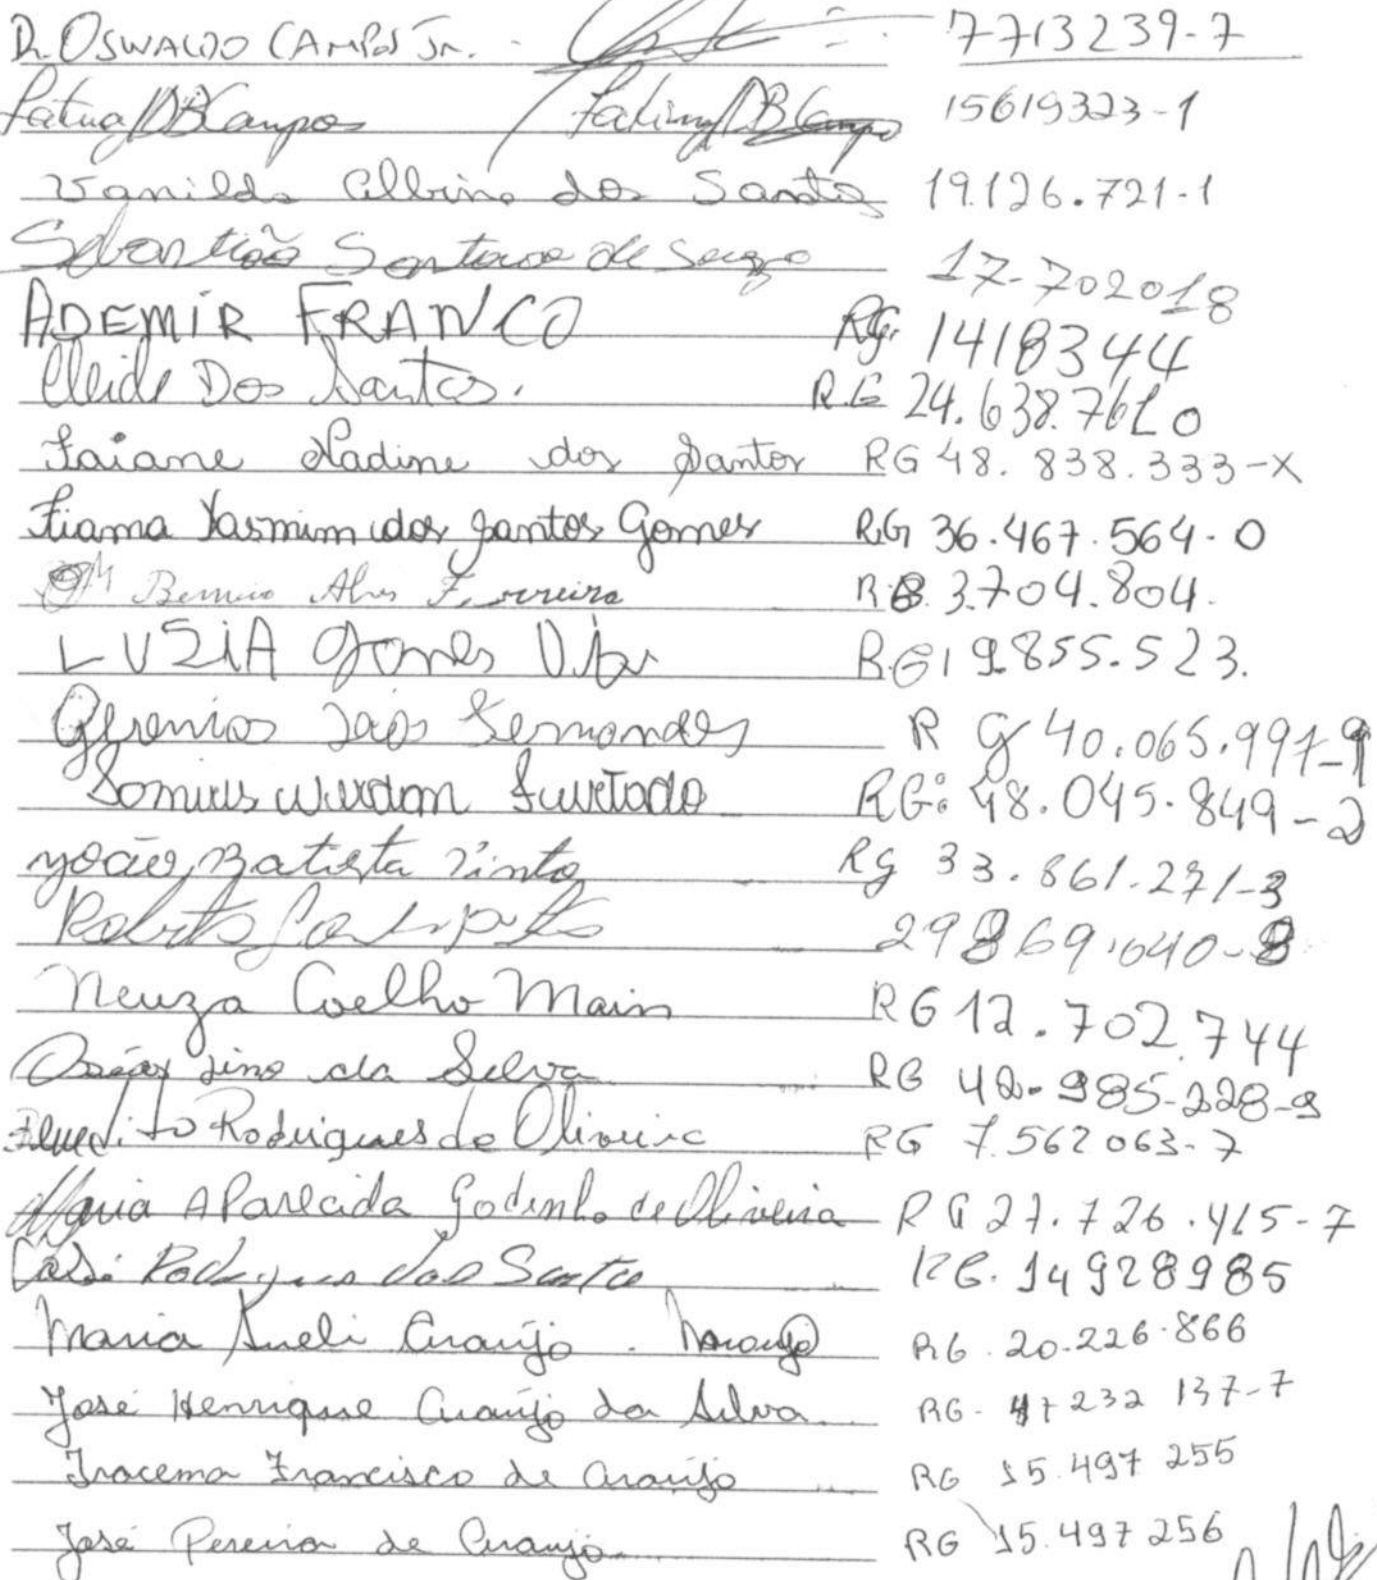 Dr. OSWALDO CAMPOS Jr. - 7713239-7
Fátima DBCampos Fatima DBCampos 15619323-1
Vanilda Albino dos Santos 19.126.721-1
Sebastião Santana de Souza 17-702018
ADEMIR FRANCO RG. 1418344
Cleide Dos Santos. R.G 24.638.761 0
Taiane Nadine dos Santos RG 48. 838.333-X
Fiama Yasmim dos Santos Gomes R.G 36.467.564-0
Alves Ferreira R.G. 3.704.804.
LUZIA Gomes R.G 19.855.523.
João Fernandes R G 40.065.997-9
Furtado RG: 48.045.849-2
João Batista Pinto Rg 33.861.271-3
Roberto 29869.040-8
Neuza Coelho Marin RG 12.702.744
Oséas Lino da Silva RG 42-985-228-9
Benedito Rodrigues de Oliveira RG 7.562063-7
Maria APArecida Godinho de Oliveira RG 27.726.415-7
Rodrigues dos Santos RG. 14928985
Maria Sueli Araújo. Maraujo RG. 20.226.866
José Henrique Araújo da Silva RG. 47 232 137-7
Iracema Francisco de Araújo RG 15.497 255
José Pereira de Araujo RG 15.497 256